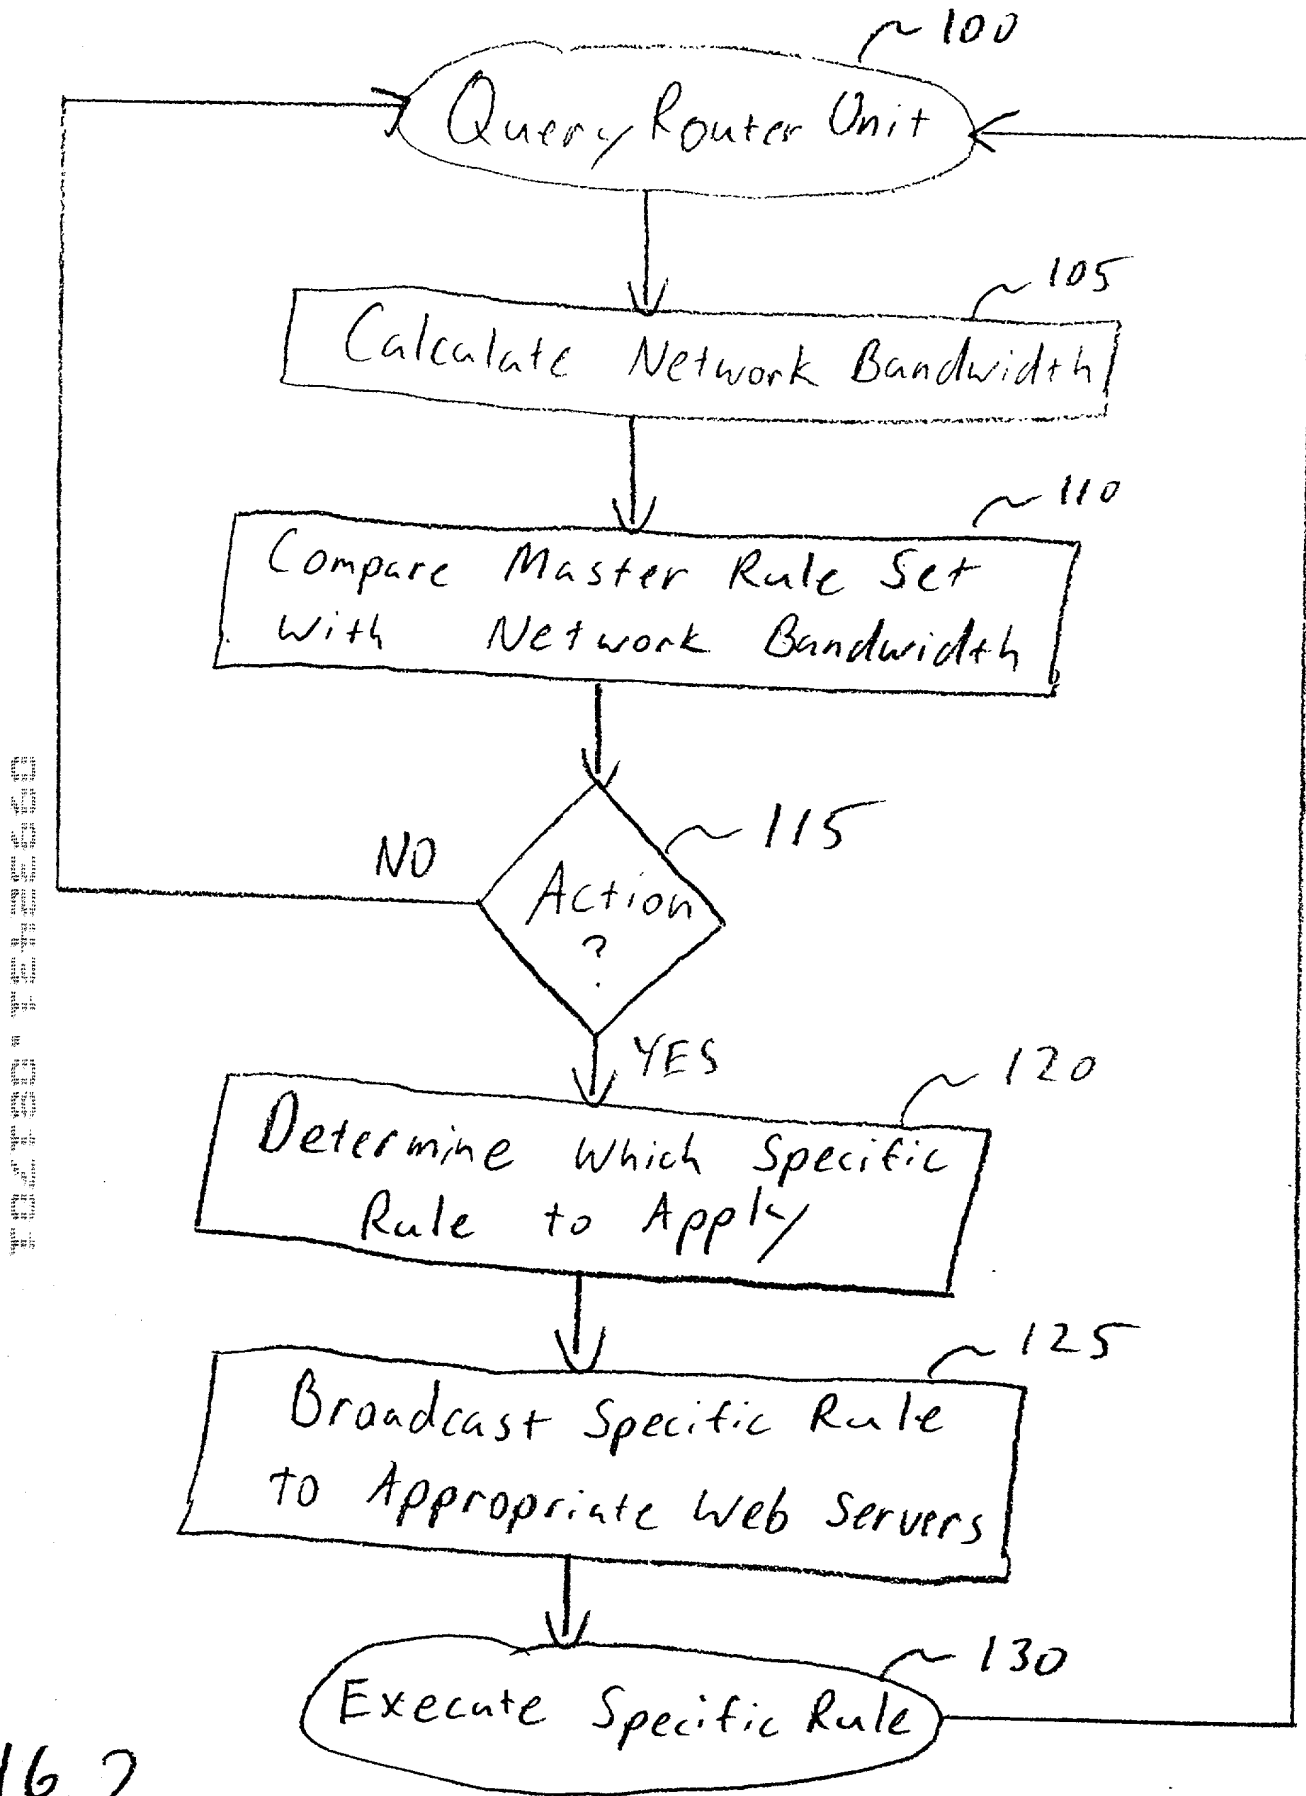 100
Query Router Unit
105
Calculate Network Bandwidth
110
Compare Master Rule Set
with Network Bandwidth
115
NO
Action
?
YES
120
Determine Which Specific
Rule to Apply
125
Broadcast Specific Rule
to Appropriate Web Servers
130
Execute Specific Rule